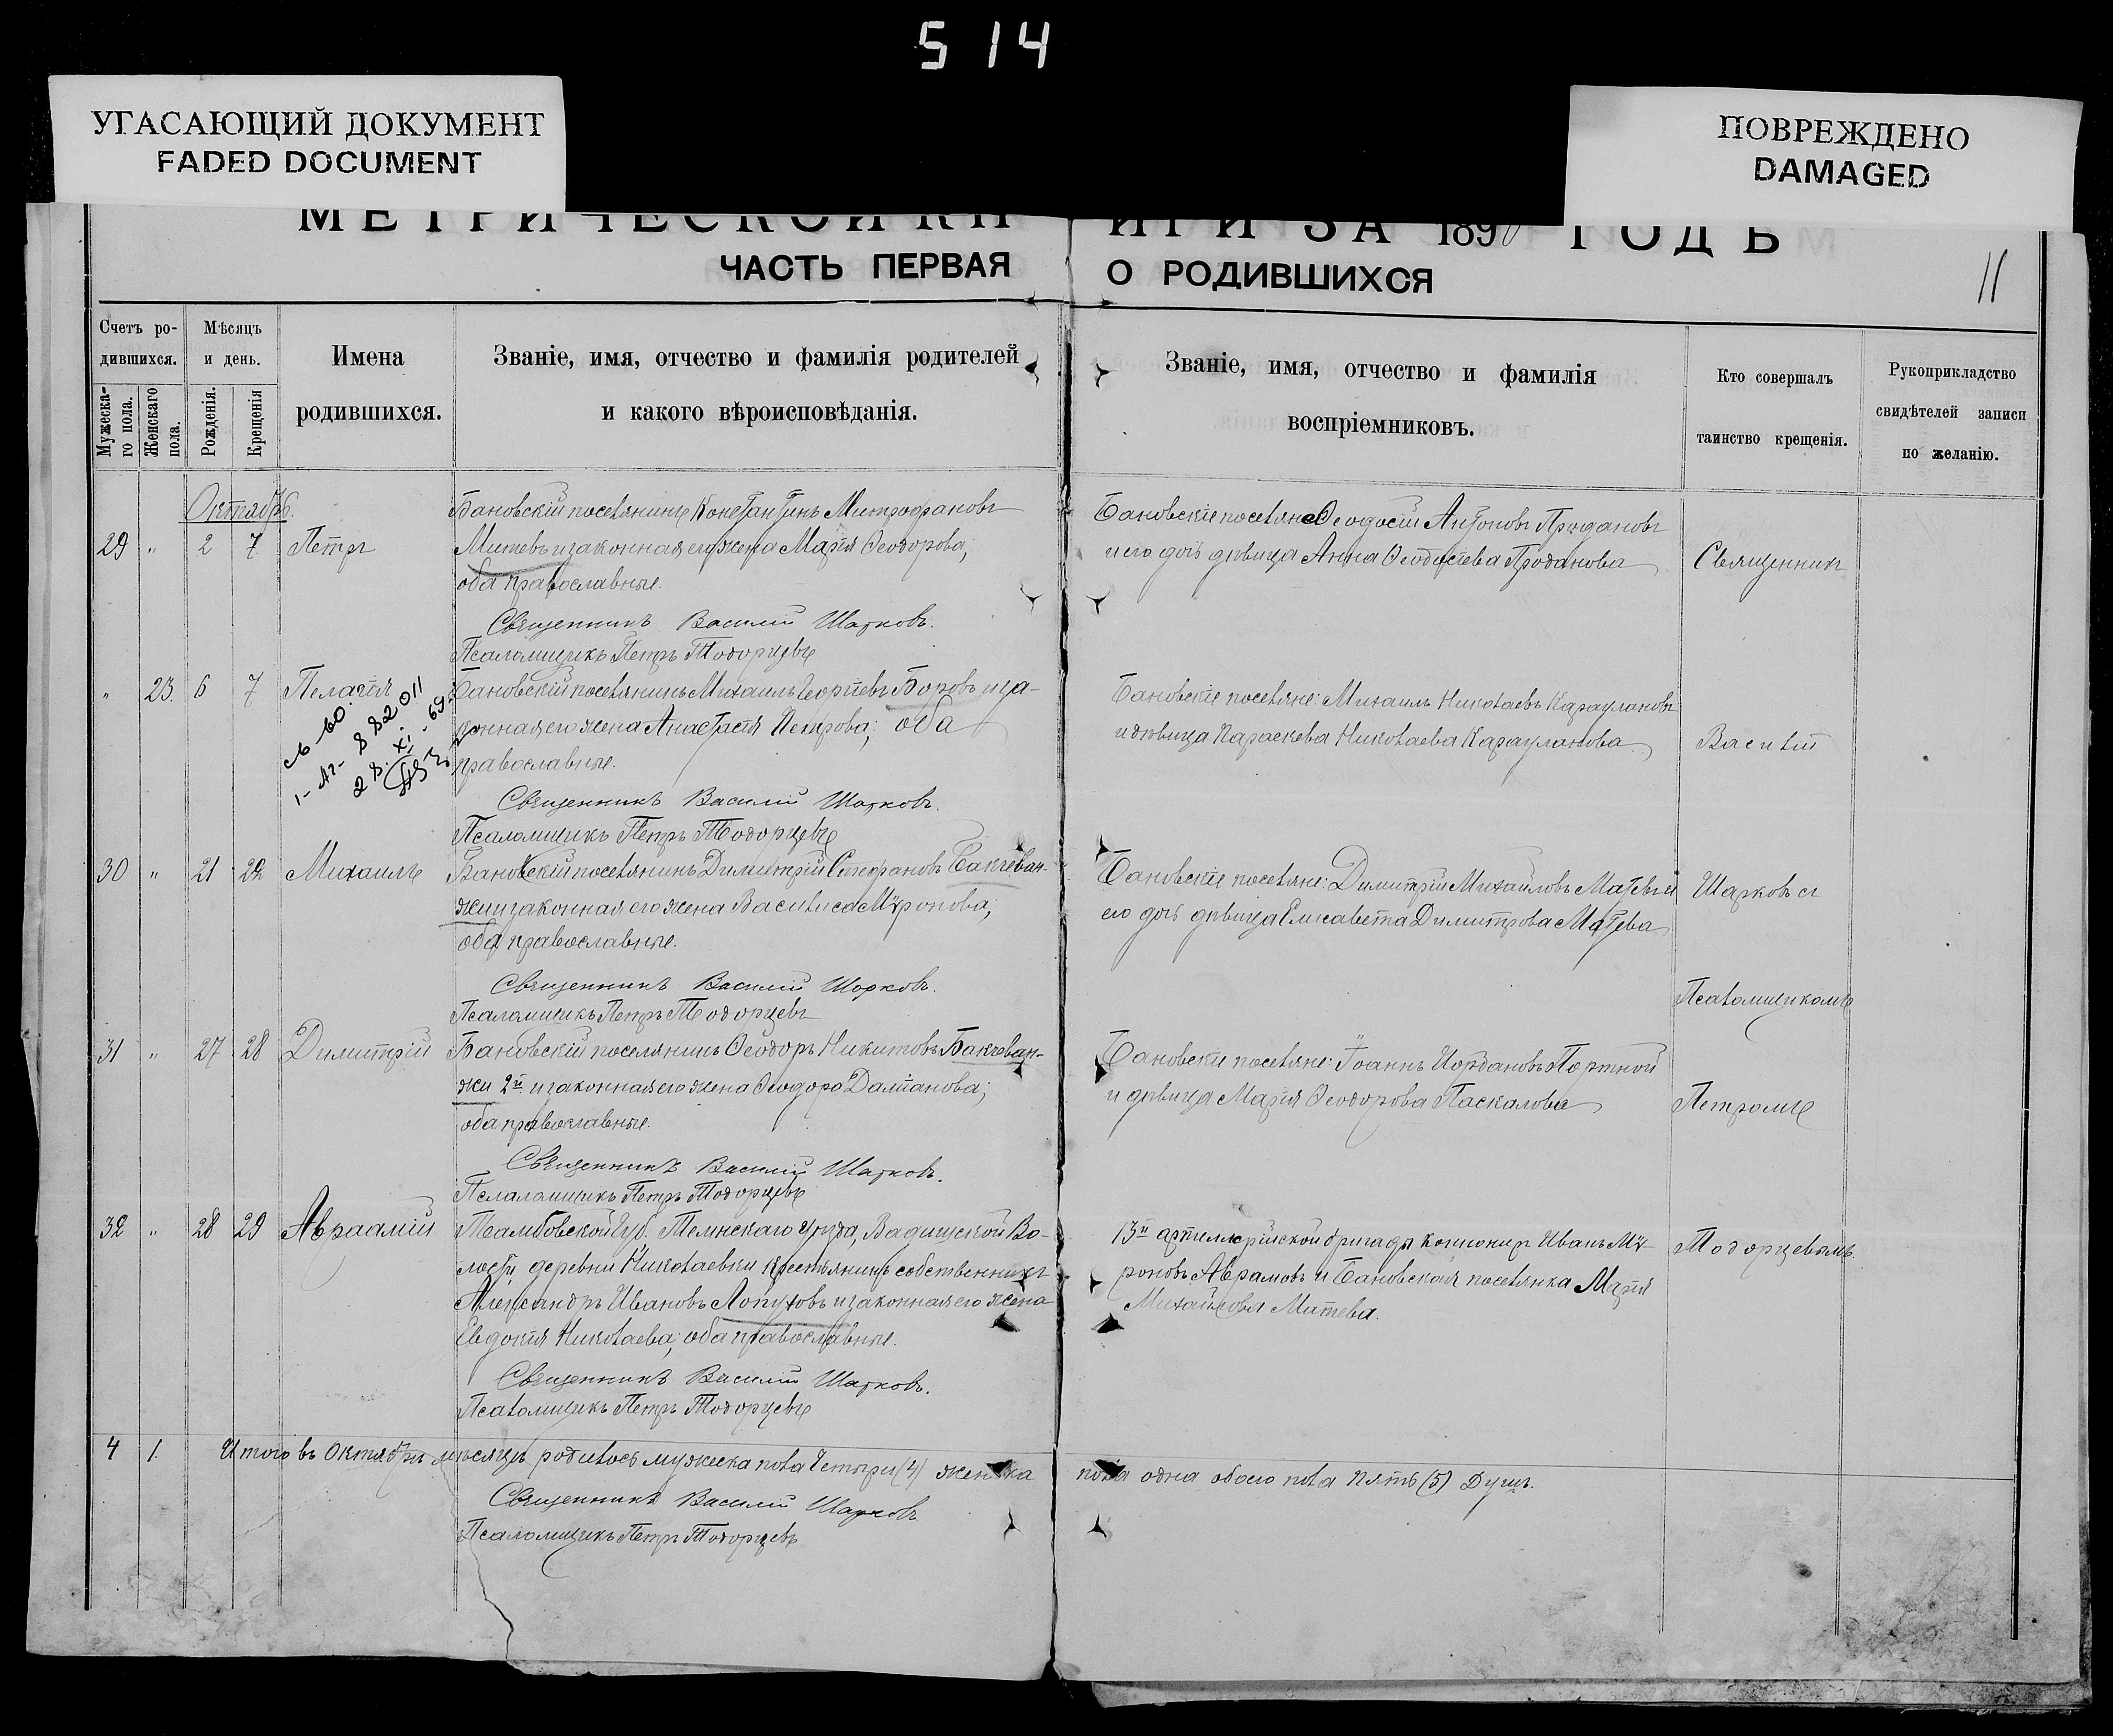 5 14
УГАСАЮЩИЙ ДОКУМЕНТ
FADED DOCUMENT
ПОВРЕЖДЕНО
DAMAGED
МЕТРИЧЕСКОЙ КН
ИГИ ЗА 1890 ГОДЪ
ЧАСТЬ ПЕРВАЯ
О РОДИВШИХСЯ
11
Счетъ ро-
дившихся.
Мужеска-
го пола.
Женскаго
пола.
Мѣсяцъ
и день.
Рожденія.
Крещенія
Имена
родившихся.
Званіе, имя, отчество и фамилія родителей
и какого вѣроисповѣданія.
Званіе, имя, отчество и фамилія
воспріемниковъ.
Кто совершалъ
таинство крещенія.
Рукоприкладство
свидѣтелей записи
по желанію.
Октябрь.
29 " 2 7 Петръ
Бановскій поселянинъ Константинъ Митрофановъ
Митевъ и законная его жена Марія Ѳеодорова,
оба православные.
Священникъ Василій Шарковъ.
Псаломщикъ Петръ Тодорцевъ
Бановскіе поселяне Ѳеодосій Антоновъ Продановъ
и его дочь дѣвица Анна Ѳеодосіева Проданова
Священникъ
" 23. 6 7 Пелагія
28. XI. 69.
Бановскій поселянинъ Михаилъ Георгіевъ Боровъ и за-
конная его жена Анастасія Петрова; оба
православные.
Священникъ Василій Шарковъ.
Псаломщикъ Петръ Тодорцевъ
Бановскіе поселяне: Михаилъ Николаевъ Караулановъ
и дѣвица Параскева Николаева Карауланова
Василій
30 " 21 22 Михаилъ
Бановскій поселянинъ Димитрій Стефановъ Бакчеван-
жи и законная его жена Василиса Мѵронова;
оба православные.
Священникъ Василій Шарковъ.
Псаломщикъ Петръ Тодорцевъ
Бановскіе поселяне: Димитрій Михайловъ Матевъ и
его дочь дѣвица Елисавета Димитрова Матева
Шарковъ съ
Псаломщикомъ
31 " 27 28 Димитрій
Бановскій поселянинъ Ѳеодоръ Никитовъ Бакчеван-
жи 2й и законная его жена Ѳеодора Даміанова;
оба православные.
Священникъ Василій Шарковъ.
Псаломщикъ Петръ Тодорцевъ
Бановскіе поселяне: Іоаннъ Іордановъ Портной
и дѣвица Марія Ѳеодорова Паскалова
Петромъ
32 " 28 29 Авраамій
Тамбовской Губ. Уѣзда, Во-
лости деревни Николаевки крестьянинъ собственникъ
Александръ Ивановъ Лопуховъ и законная его жена
Евдокія Николаева; оба православные.
Священникъ Василій Шарковъ.
Псаломщикъ Петръ Тодорцевъ
13й артиллерійской бригады канониръ Иванъ Мѵ-
роновъ Аврамовъ и Бановская поселянка Марія
Михайлова Митева.
Тодорцевымъ.
4 1. Итого въ Октябрѣ мѣсяцѣ родилось мужеска пола четыри (4) женска
пола одна обоего пола пять (5) Душъ.
Священникъ Василій Шарковъ
Псаломщикъ Петръ Тодорцевъ